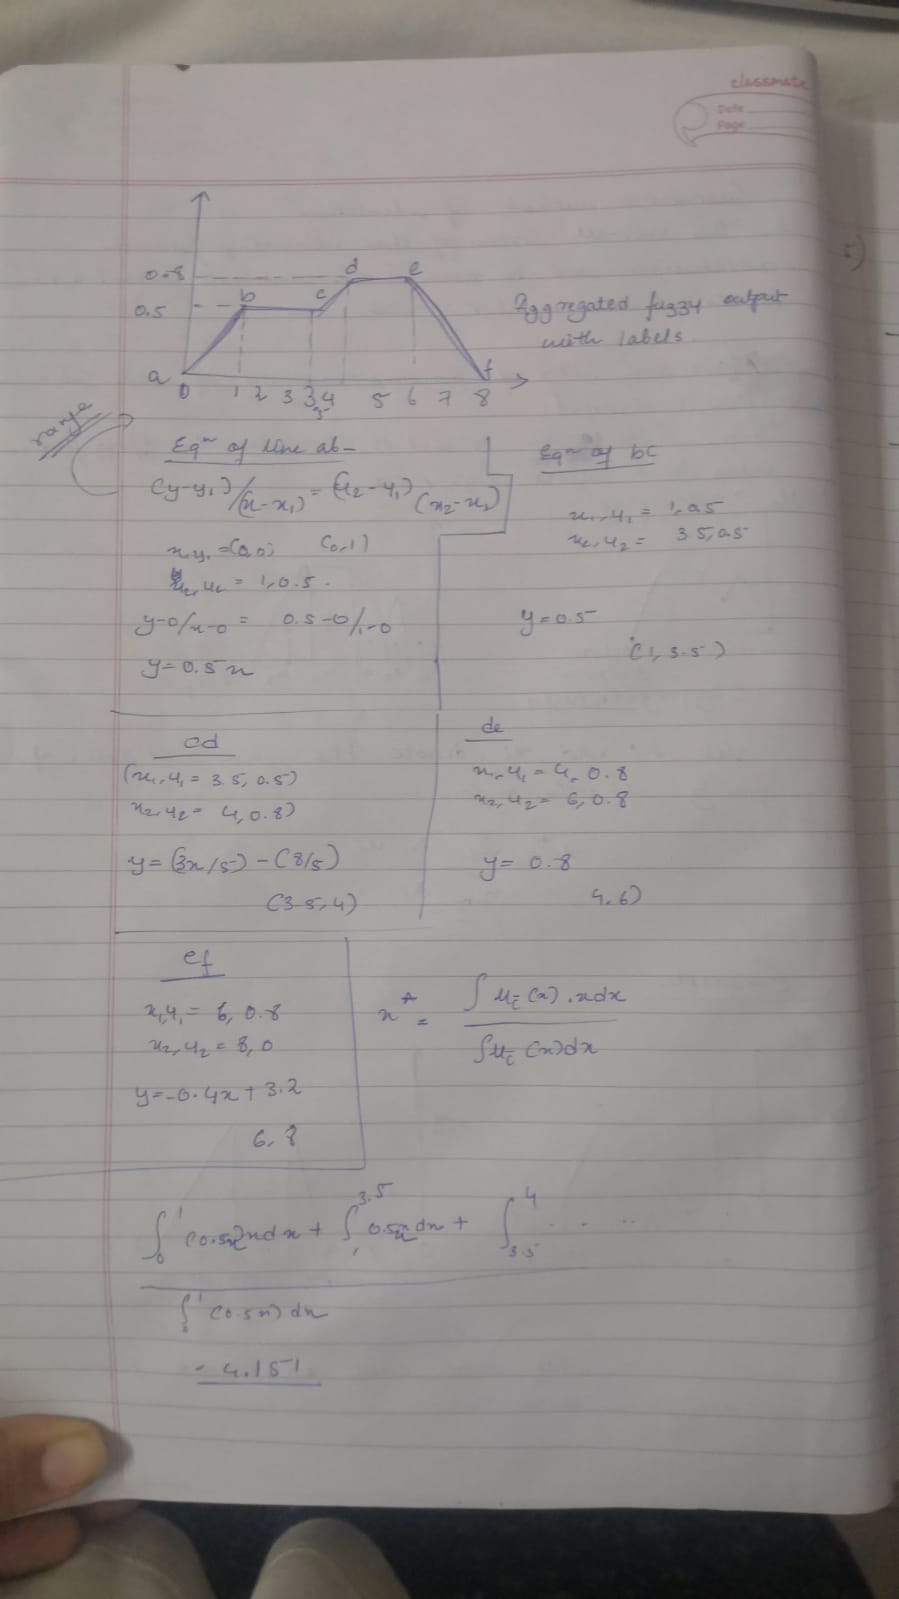 classmate
Date
Page
0.8
d e
b c
0.5
Aggregated fuzzy output
with labels
a f
0 1 2 3 3.5 4 5 6 7 8
range
Eqⁿ of line ab-
(y-y₁)/(x-x₁) = (y₂-y₁)(x₂-x₁)
x₁y₁ = (0,0) (0,1)
x₂,y₂ = 1,0.5.
y-0/x-0 = 0.5-0/1-0
y=0.5x
Eqⁿ of bc
x₁,y₁ = 1,0.5
x₂,y₂ = 3.5,0.5
y=0.5
(1,3.5)
cd
(x₁,y₁ = 3.5,0.5)
x₂,y₂ = 4,0.8)
y=(3x/5)-(8/5)
(3.5,4)
de
x₁,y₁ = 4,0.8
x₂,y₂ = 6,0.8
y= 0.8
4,6)
ef
x₁,y₁ = 6,0.8
x₂,y₂ = 8,0
y=-0.4x+3.2
6,8
x* = ∫μc̄(x).xdx
∫μc̄(x)dx
∫₀¹(0.5x)xdx + ∫₁³·⁵ 0.5xdx + ∫₃.₅⁴ ....
∫₀¹(0.5x)dx
- 4.151
5)